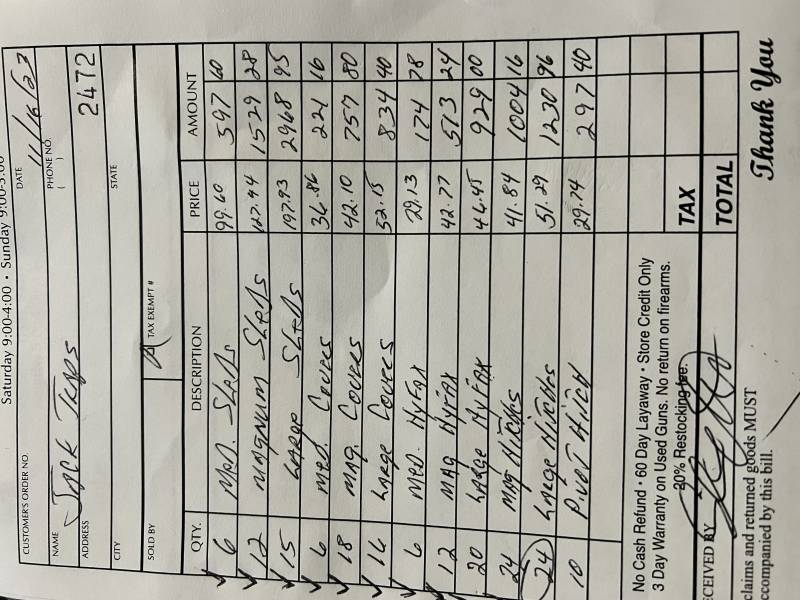 Saturday 9:00-4:00 • Sunday 9:00-3:00
CUSTOMER'S ORDER NO DATE 11/16/23
NAME JACK TRAPS PHONE NO. ( )
ADDRESS 2472
CITY STATE
SOLD BY TAX EXEMPT #
QTY. DESCRIPTION PRICE AMOUNT
6 MED. SLEDS 99.60 597 60
12 MAGNUM SLEDS 127.44 1529 28
15 LARGE SLEDS 197.93 2968 95
6 MED. COVERS 36.86 221 16
18 MAG. COVERS 42.10 757 80
16 LARGE COVERS 52.15 834 40
6 MED. HYFAX 29.13 174 78
12 MAG HYFAX 42.77 513 24
20 LARGE HYFAX 46.45 929 00
24 MAG HITCHES 41.84 1004 16
24 LARGE HITCHES 51.29 1230 96
10 PIVOT HITCH 29.74 297 40
No Cash Refund • 60 Day Layaway • Store Credit Only
3 Day Warranty on Used Guns. No return on firearms.
20% Restocking fee.
TAX
RECEIVED BY TOTAL
claims and returned goods MUST
accompanied by this bill.
Thank You